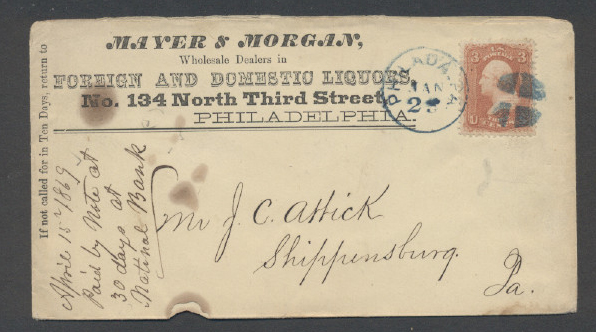 MAYER & MORGAN,
Wholesale Dealers in
FOREIGN AND DOMESTIC LIQUORS,
No. 134 North Third Street,
PHILADELPHIA.
If not called for in Ten Days, return to
PHILADA. PA
JAN
25
3 3
U.S.
April 15th 1869
Paid by Note at
30 days at
National Bank
Mr J. C. Attick
Shippensburg.
Pa.